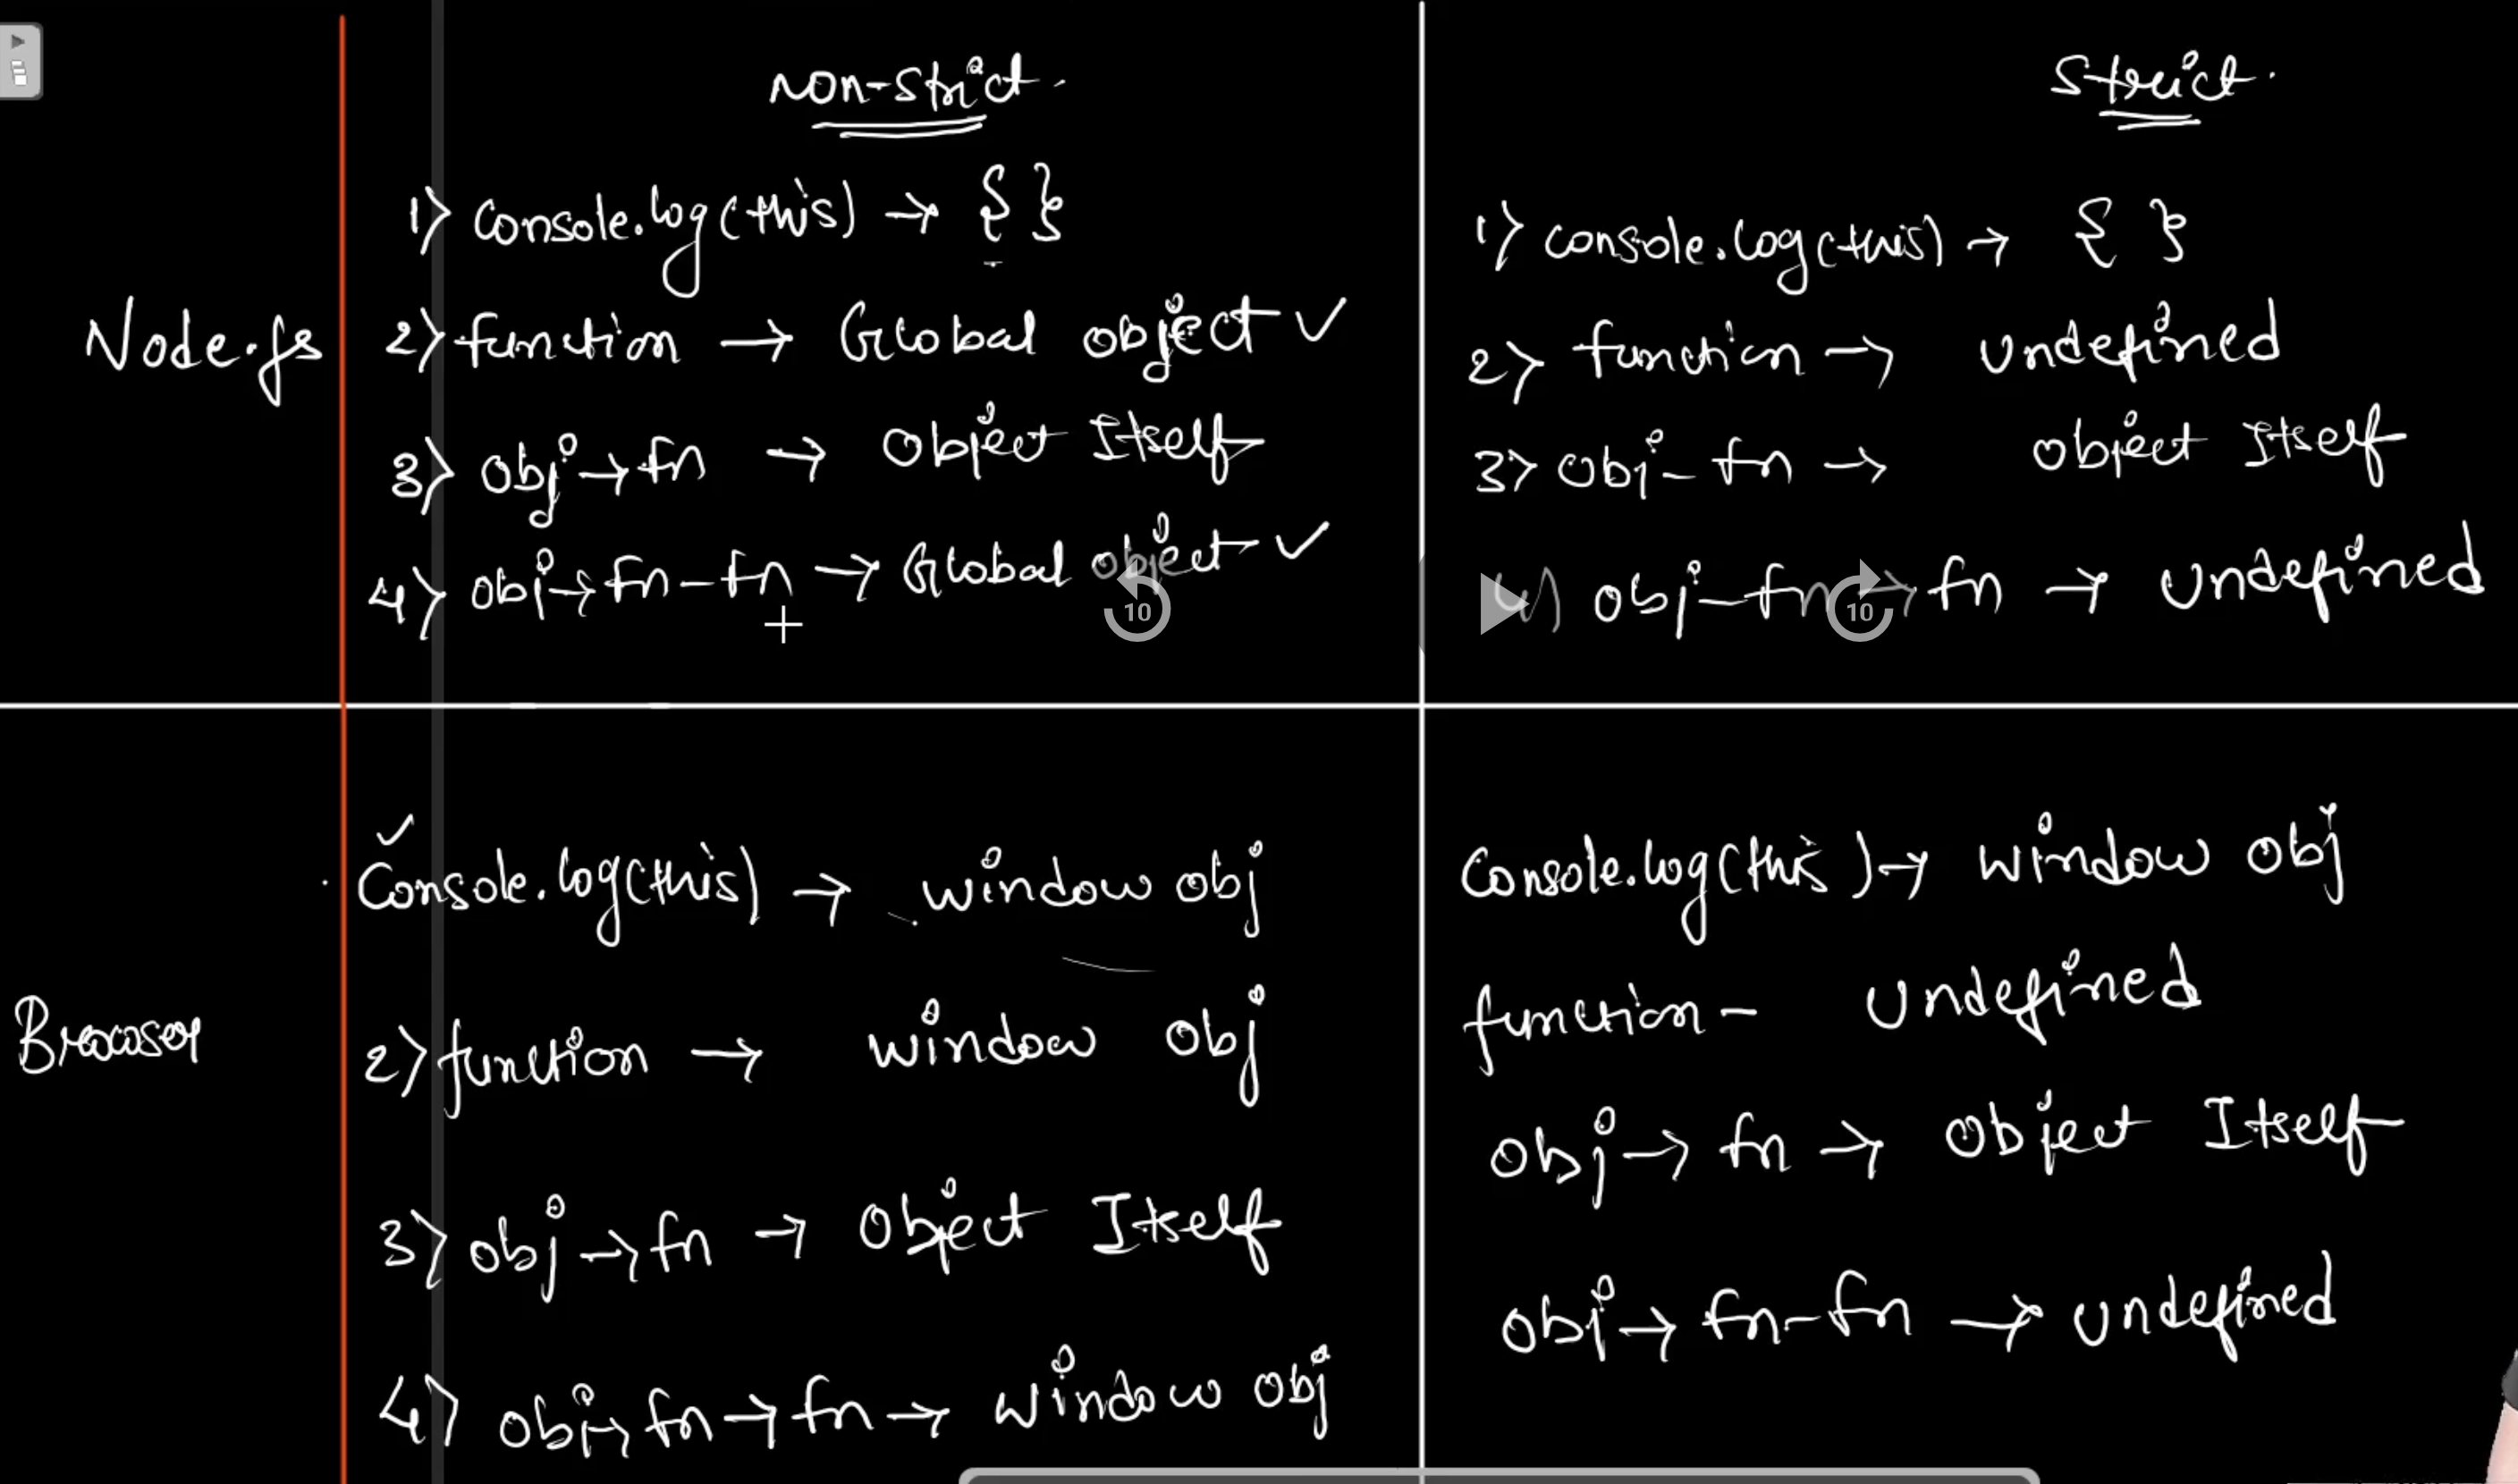 Non-strict.
Strict.
Node.js
1) console.log(this) → { }
2) function → Global object ✓
3) obj → fn → Object Itself
4) obj → fn - fn → Global object ✓
10
1) console.log(this) → { }
2) function → Undefined
3) obj - fn → object Itself
4) obj - fn → fn → Undefined
10
Browser
✓
Console.log(this) → window obj
2) function → window obj
3) obj → fn → Object Itself
4) obj → fn → fn → window obj
Console.log(this) → window obj
function - Undefined
obj → fn → Object Itself
obj → fn - fn → undefined